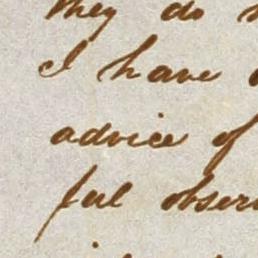 they do
I have
advice of
ful obser